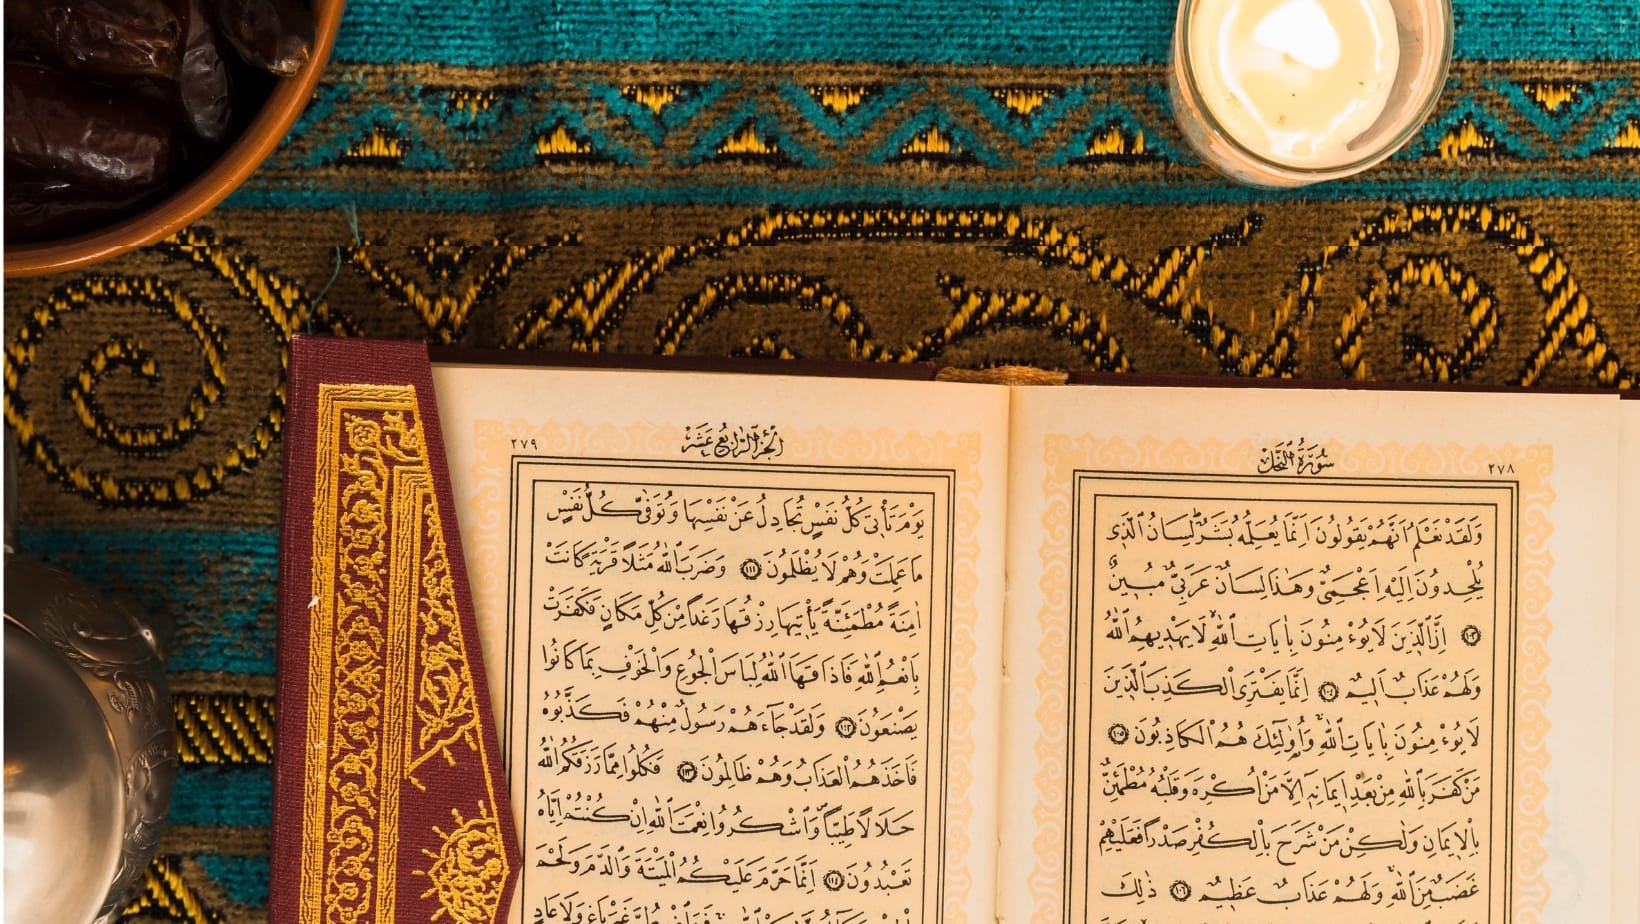 سُورَةُ ٱلنَّحْلِ ٢٧٨
وَلَقَدْ نَعْلَمُ اَنَّهُمْ يَقُولُونَ اِنَّمَا يُعَلِّمُهُ بَشَرٌ لِسَانُ الَّذ۪ي
يُلْحِدُونَ اِلَيْهِ اَعْجَمِيٌّ وَهٰذَا لِسَانٌ عَرَبِيٌّ مُب۪ينٌ
﴿١٠٣﴾ اِنَّ الَّذ۪ينَ لَا يُؤْمِنُونَ بِاٰيَاتِ اللّٰهِۙ لَا يَهْد۪يهِمُ اللّٰهُ
وَلَهُمْ عَذَابٌ اَل۪يمٌ ﴿١٠٤﴾ اِنَّمَا يَفْتَرِي الْكَذِبَ الَّذ۪ينَ
لَا يُؤْمِنُونَ بِاٰيَاتِ اللّٰهِۚ وَاُو۬لٰٓئِكَ هُمُ الْكَاذِبُونَ ﴿١٠٥﴾
مَنْ كَفَرَ بِاللّٰهِ مِنْ بَعْدِ ا۪يمَانِه۪ٓ اِلَّا مَنْ اُكْرِهَ وَقَلْبُهُ مُطْمَئِنٌّ
بِالْا۪يمَانِ وَلٰكِنْ مَنْ شَرَحَ بِالْكُفْرِ صَدْرًا فَعَلَيْهِمْ
غَضَبٌ مِنَ اللّٰهِۚ وَلَهُمْ عَذَابٌ عَظ۪يمٌ ﴿١٠٦﴾ ذٰلِكَ
اَلْجُزْءُ الرَّابِعُ عَشَرَ ٢٧٩
يَوْمَ تَأْت۪ي كُلُّ نَفْسٍ تُجَادِلُ عَنْ نَفْسِهَا وَتُوَفّٰى كُلُّ نَفْسٍ
مَا عَمِلَتْ وَهُمْ لَا يُظْلَمُونَ ﴿١١١﴾ وَضَرَبَ اللّٰهُ مَثَلًا قَرْيَةً كَانَتْ
اٰمِنَةً مُطْمَئِنَّةً يَأْت۪يهَا رِزْقُهَا رَغَدًا مِنْ كُلِّ مَكَانٍ فَكَفَرَتْ
بِاَنْعُمِ اللّٰهِ فَاَذَاقَهَا اللّٰهُ لِبَاسَ الْجُوعِ وَالْخَوْفِ بِمَا كَانُوا
يَصْنَعُونَ ﴿١١٢﴾ وَلَقَدْ جَٓاءَهُمْ رَسُولٌ مِنْهُمْ فَكَذَّبُوهُ
فَاَخَذَهُمُ الْعَذَابُ وَهُمْ ظَالِمُونَ ﴿١١٣﴾ فَكُلُوا مِمَّا رَزَقَكُمُ اللّٰهُ
حَلَالًا طَيِّبًا وَاشْكُرُوا نِعْمَتَ اللّٰهِ اِنْ كُنْتُمْ اِيَّاهُ
تَعْبُدُونَ ﴿١١٤﴾ اِنَّمَا حَرَّمَ عَلَيْكُمُ الْمَيْتَةَ وَالدَّمَ وَلَحْمَ